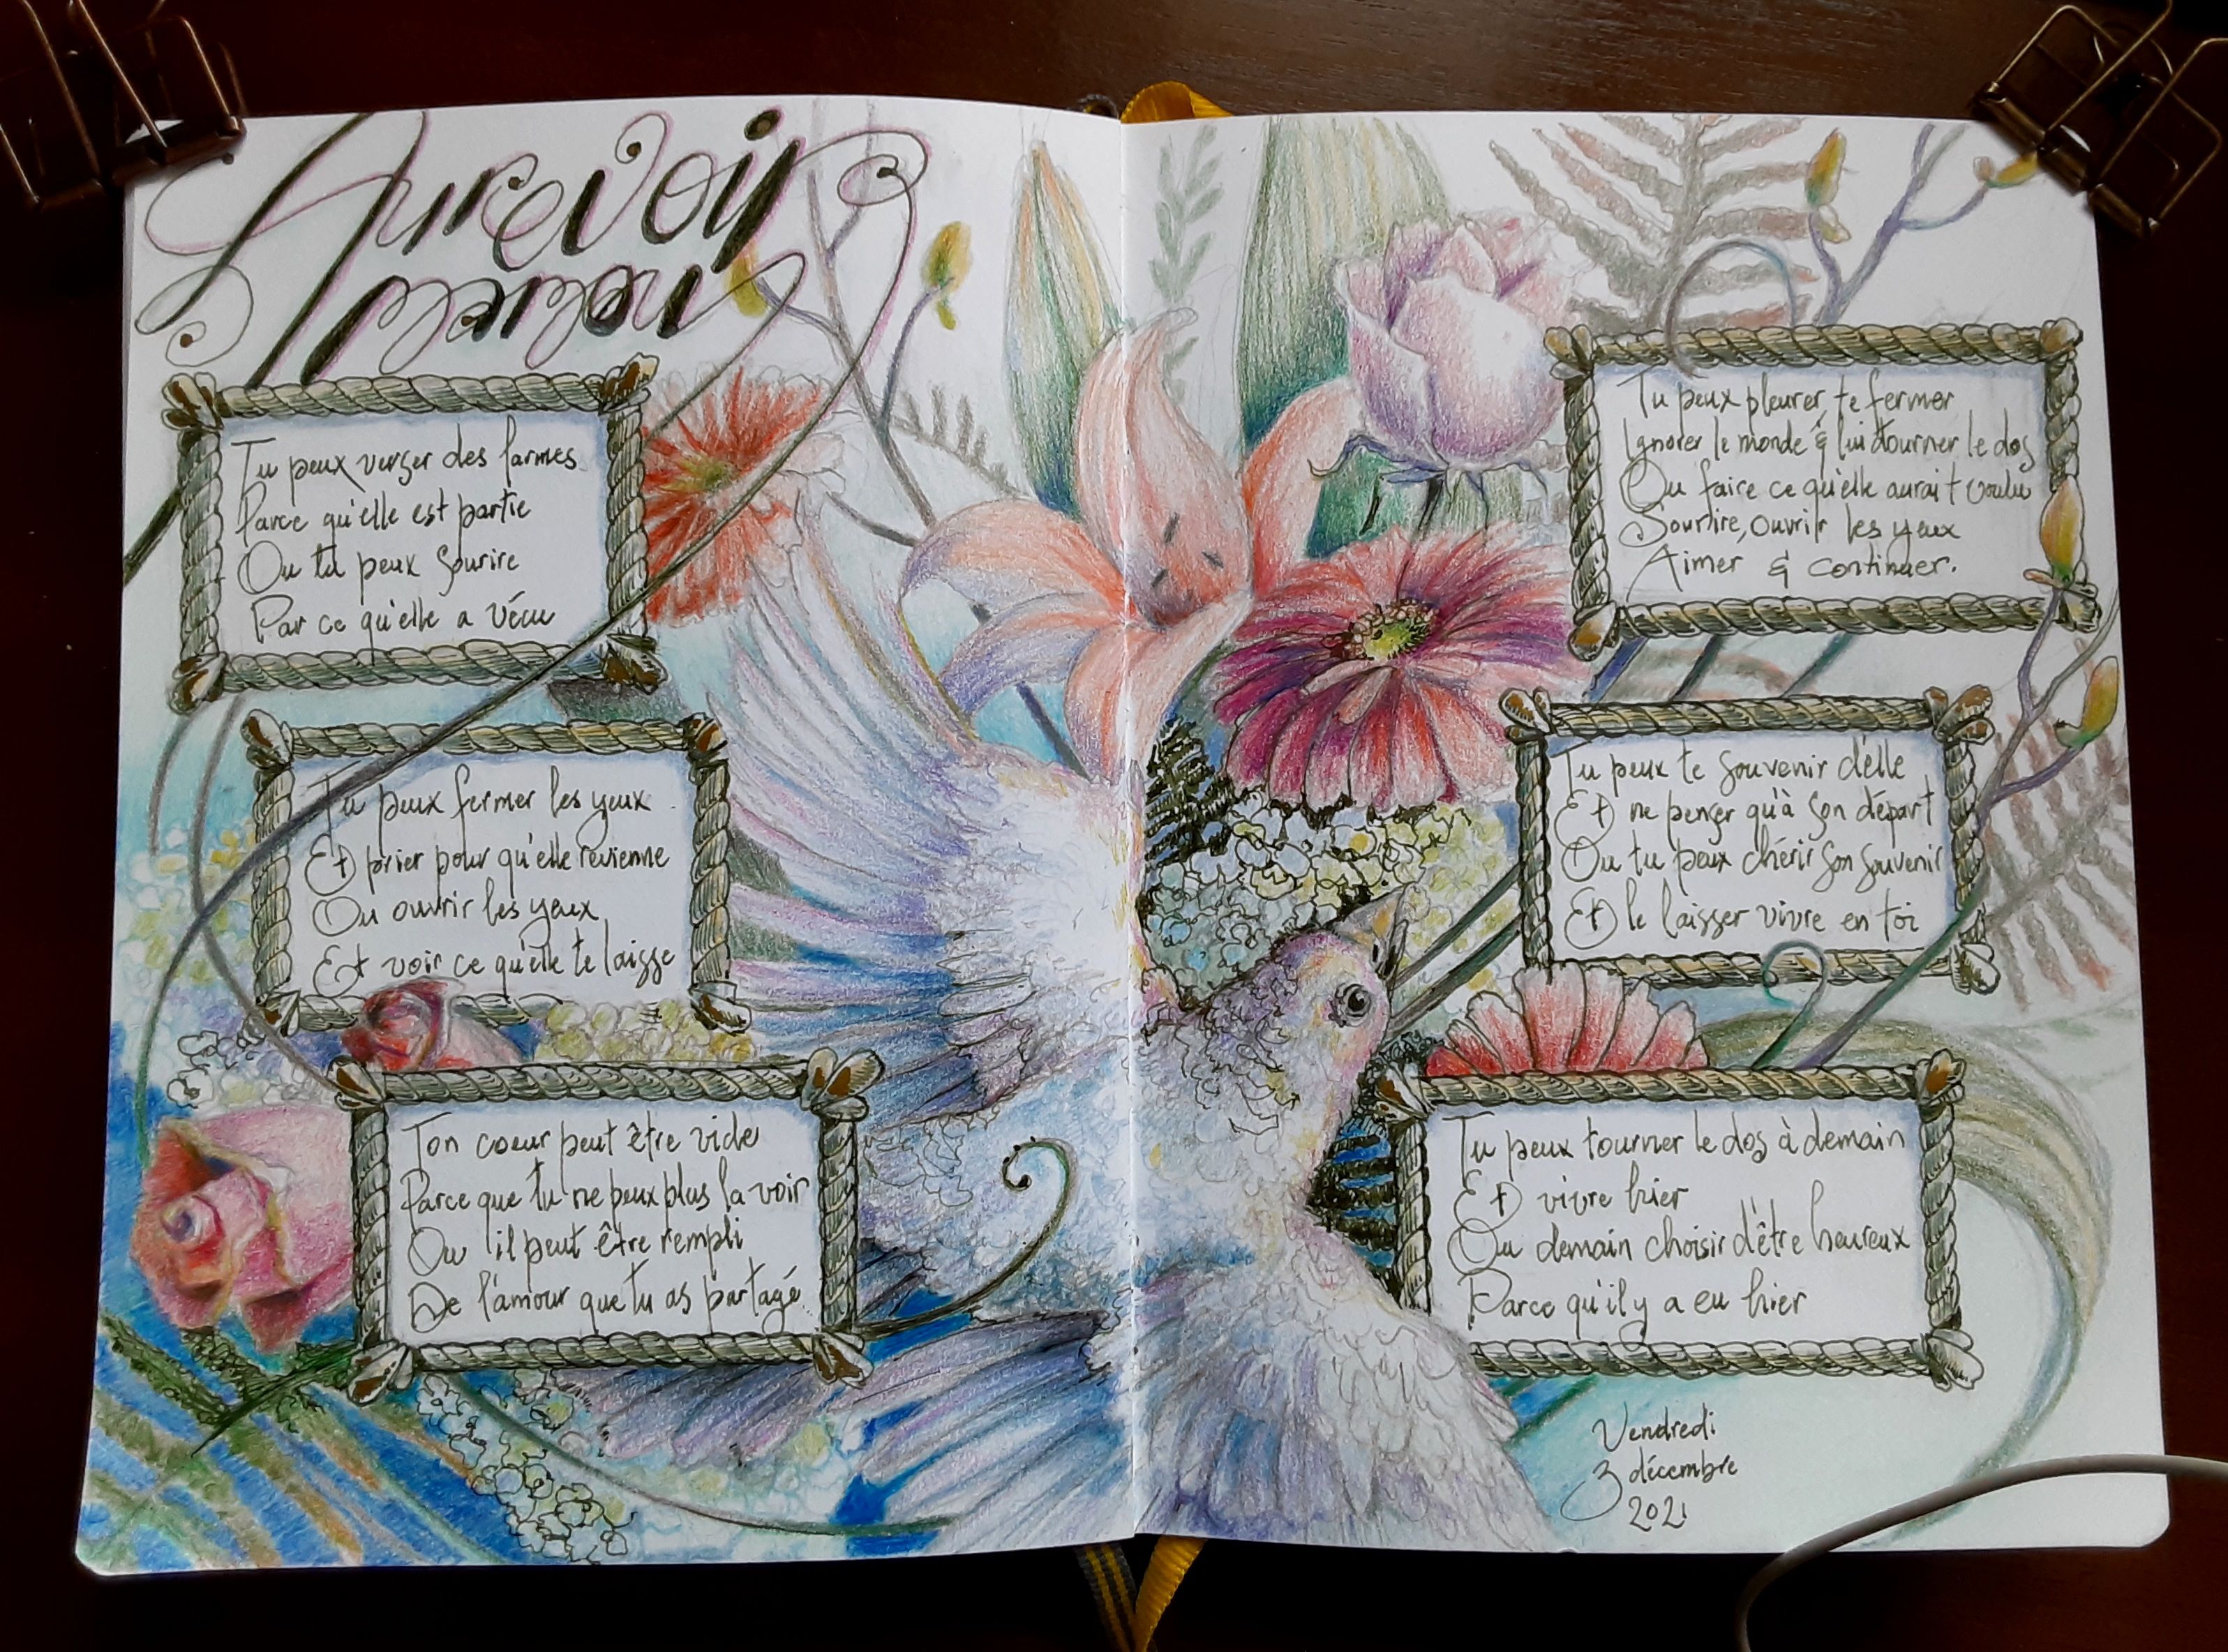 Aurevoir
maman
Tu peux verser des larmes
Parce qu'elle est partie
Ou tu peux sourire
Par ce qu'elle a vécu
Tu peux fermer les yeux
Et prier pour qu'elle revienne
Ou ouvrir les yeux
Et voir ce qu'elle te laisse
Ton coeur peut être vide
Parce que tu ne peux plus la voir
Ou il peut être rempli
De l'amour que tu as partagé
Tu peux pleurer, te fermer
Ignorer le monde & lui tourner le dos
Ou faire ce qu'elle aurait voulu
Sourire, ouvrir les yeux
Aimer & continuer.
Tu peux te souvenir d'elle
Et ne penser qu'à son départ
Ou tu peux chérir son souvenir
Et le laisser vivre en toi
Tu peux tourner le dos à demain
Et vivre hier
Ou demain choisir d'être heureux
Parce qu'il y a eu hier
Vendredi
3 décembre
2021